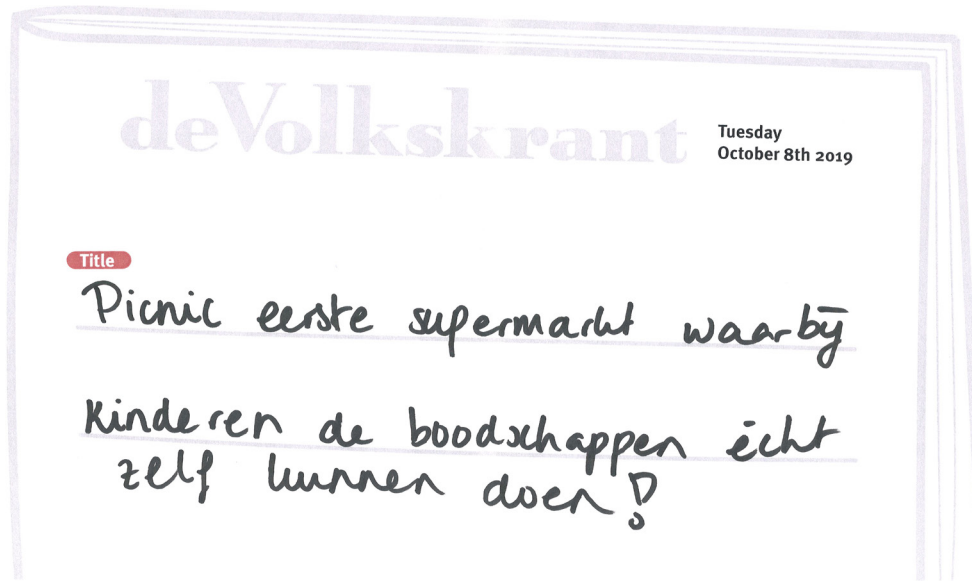 deVolkskrant
Tuesday
October 8th 2019
Title
Picnic eerste supermarkt waarbij
kinderen de boodschappen écht
zelf kunnen doen!